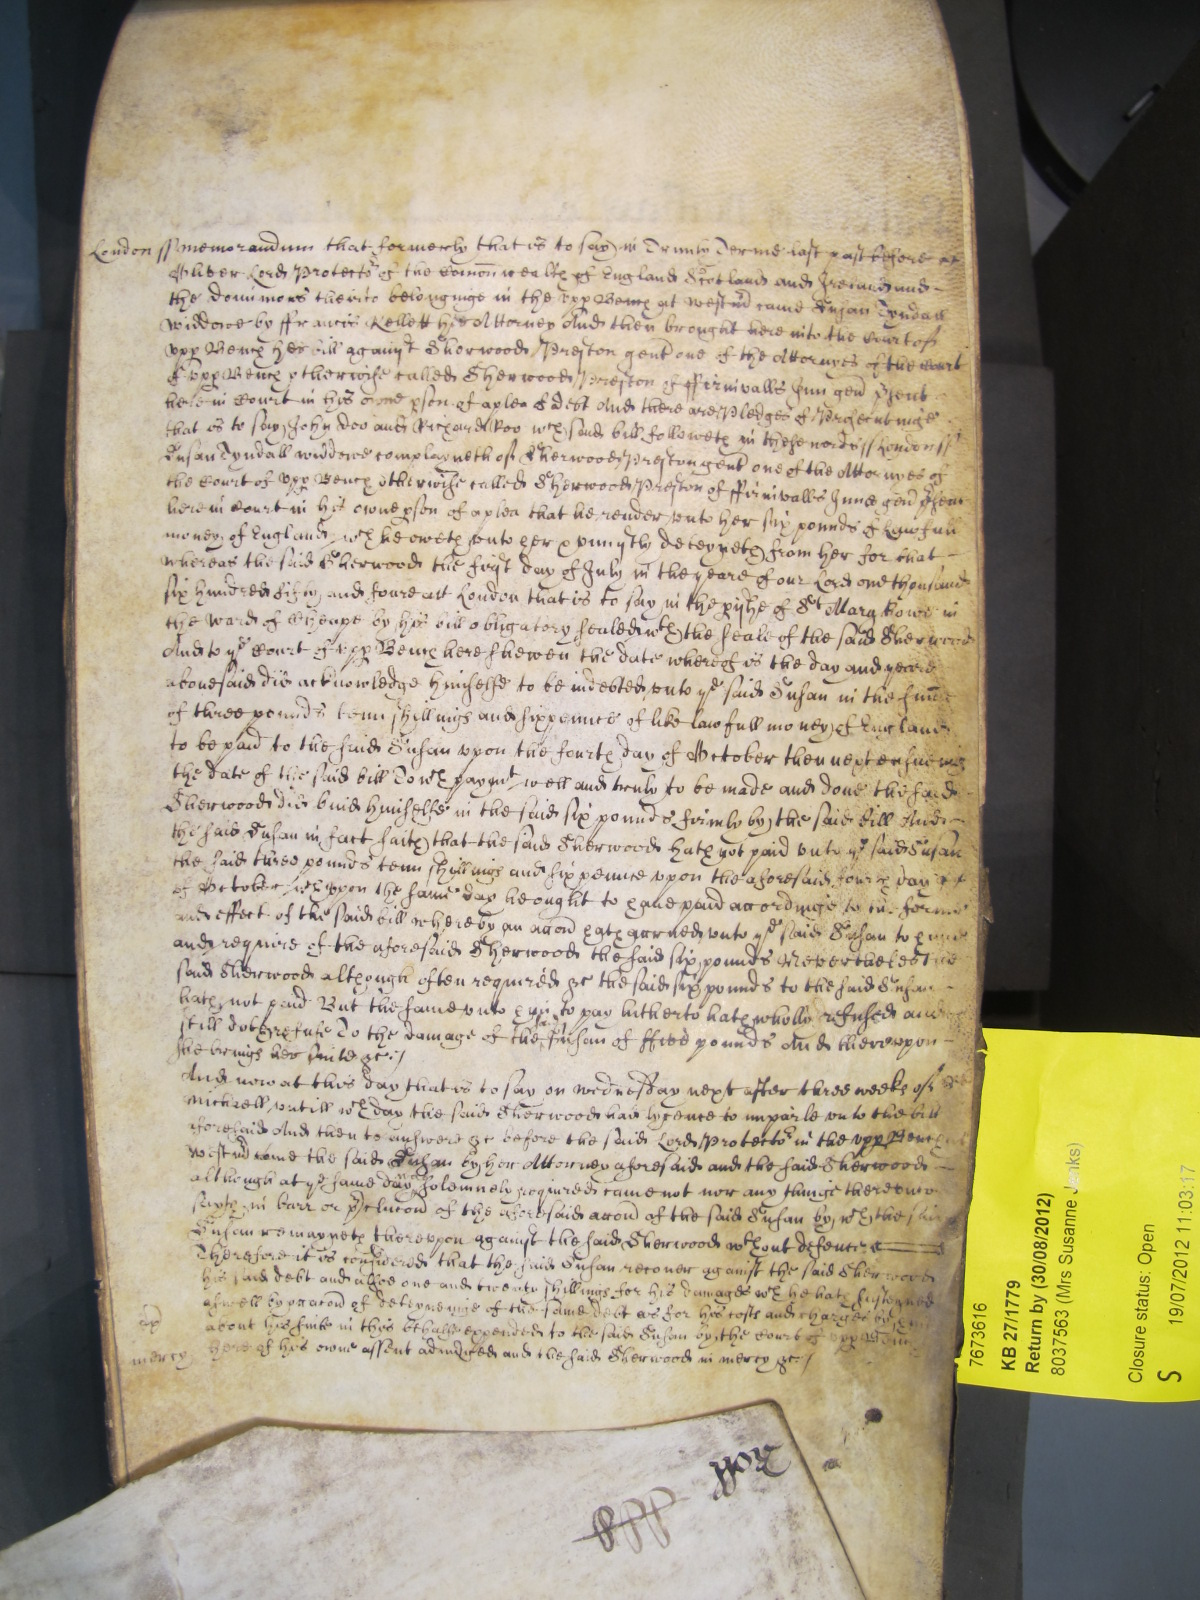 London ss Memorandum that formerly that is to say in Trinity Terme last past before
Oliver Lord Protector of the Comonwealth of England Scotland and Ireland and
the dominions thereto belonginge in the upp Bench at Westm came Susan Tyndall
widdowe by ffrancis Kellett his Attorney And then brought here into the Court of
upp Bench her bill against Sherwood Preston gent one of the Attornyes of the Court
of upp Bench otherwise called Sherwood Preston of ffurnivalls Inn gent psent
here in Court in his owne pson of a plea of debt And there are Pledges of Prosecutinge
that is to say John Doo and Richard Roo wch said bill followeth in these words ss London ss
Susan Tyndall widdowe complayneth of Sherwood Preston gent one of the Attornyes of
the Court of upp Bench otherwise called Sherwood Preston of ffurnivalls Inne gent psent
here in Court in his owne pson of a plea that he render unto her six pounds of lawfull
money of England wch he oweth unto her & uniustly deteyneth from her for that
whereas the said Sherwood the first day of July in the yeare of our Lord one thousand
six hundred fifty and foure att London that is to say in the pishe of St Mary Bowe in
the ward of Cheape by his bill obligatory sealed wth the seale of the said Sherwood
And to ye Court of upp Bench here shewen the date whereof is the day and yeare
abovesaid did acknowledge himselfe to be indebted unto ye said Susan in the sume
of three pounds tenn shillings and sixpence of like lawfull money of England
to be paid to the said Susan upon the fourth day of October then next ensueing
the date of the said bill To wch paymt well and truly to be made and done the said
Sherwood did bind himselfe in the said six pounds firmly by the said bill And
the said Susan in fact saith that the said Sherwood hath not paid unto ye said Susan
the said three pounds tenn shillings and six pence upon the aforesaid fourth day
of October wch upon the same day he ought to have paid accordinge to the forme
and effect of the said bill whereby an accon hath accrued unto ye said Susan to have
and require of the aforesaid Sherwood the said six pounds Neverthelesse the
said Sherwood although often required &c the said six pounds to the said Susan
hath not paid But the same unto her to pay hitherto hath wholly refused and
still doth refuse To the damage of the said Susan of ffive pounds And thereupon
she brings her suite &c
And now at this day that is to say on wednesday next after three weekes of St
Michaell untill wch day the said Sherwood had lycence to imparle unto the bill
aforesaid And then to answere &c before the said Lord Protector in the upp Bench
Westm came the said Susan by her Attorney aforesaid and the said Sherwood
although at ye same day solemnely required came not nor any thinge thereunto
saith in barr or pclucon of the aforesaid accon of the said Susan by wch the said
Susan remayneth thereupon against the said Sherwood wthout defence
Therefore it is considered that the said Susan recover against the said Sherwood
his said debt and alsoe one and twenty shillings for his damages wch he hath susteyned
aswell by occacon of deteyneinge of the same debt as for his costs and charges by
about his suite in this behalfe expended to the said Susan by the Court of upp Bench
mercy here of his owne assent adiudged and the said Sherwood in mercy &c
7673616
KB 27/1779
Return by (30/08/2012)
8037563 (Mrs Susanne Jenks)
Closure status: Open
S 19/07/2012 11:03:17